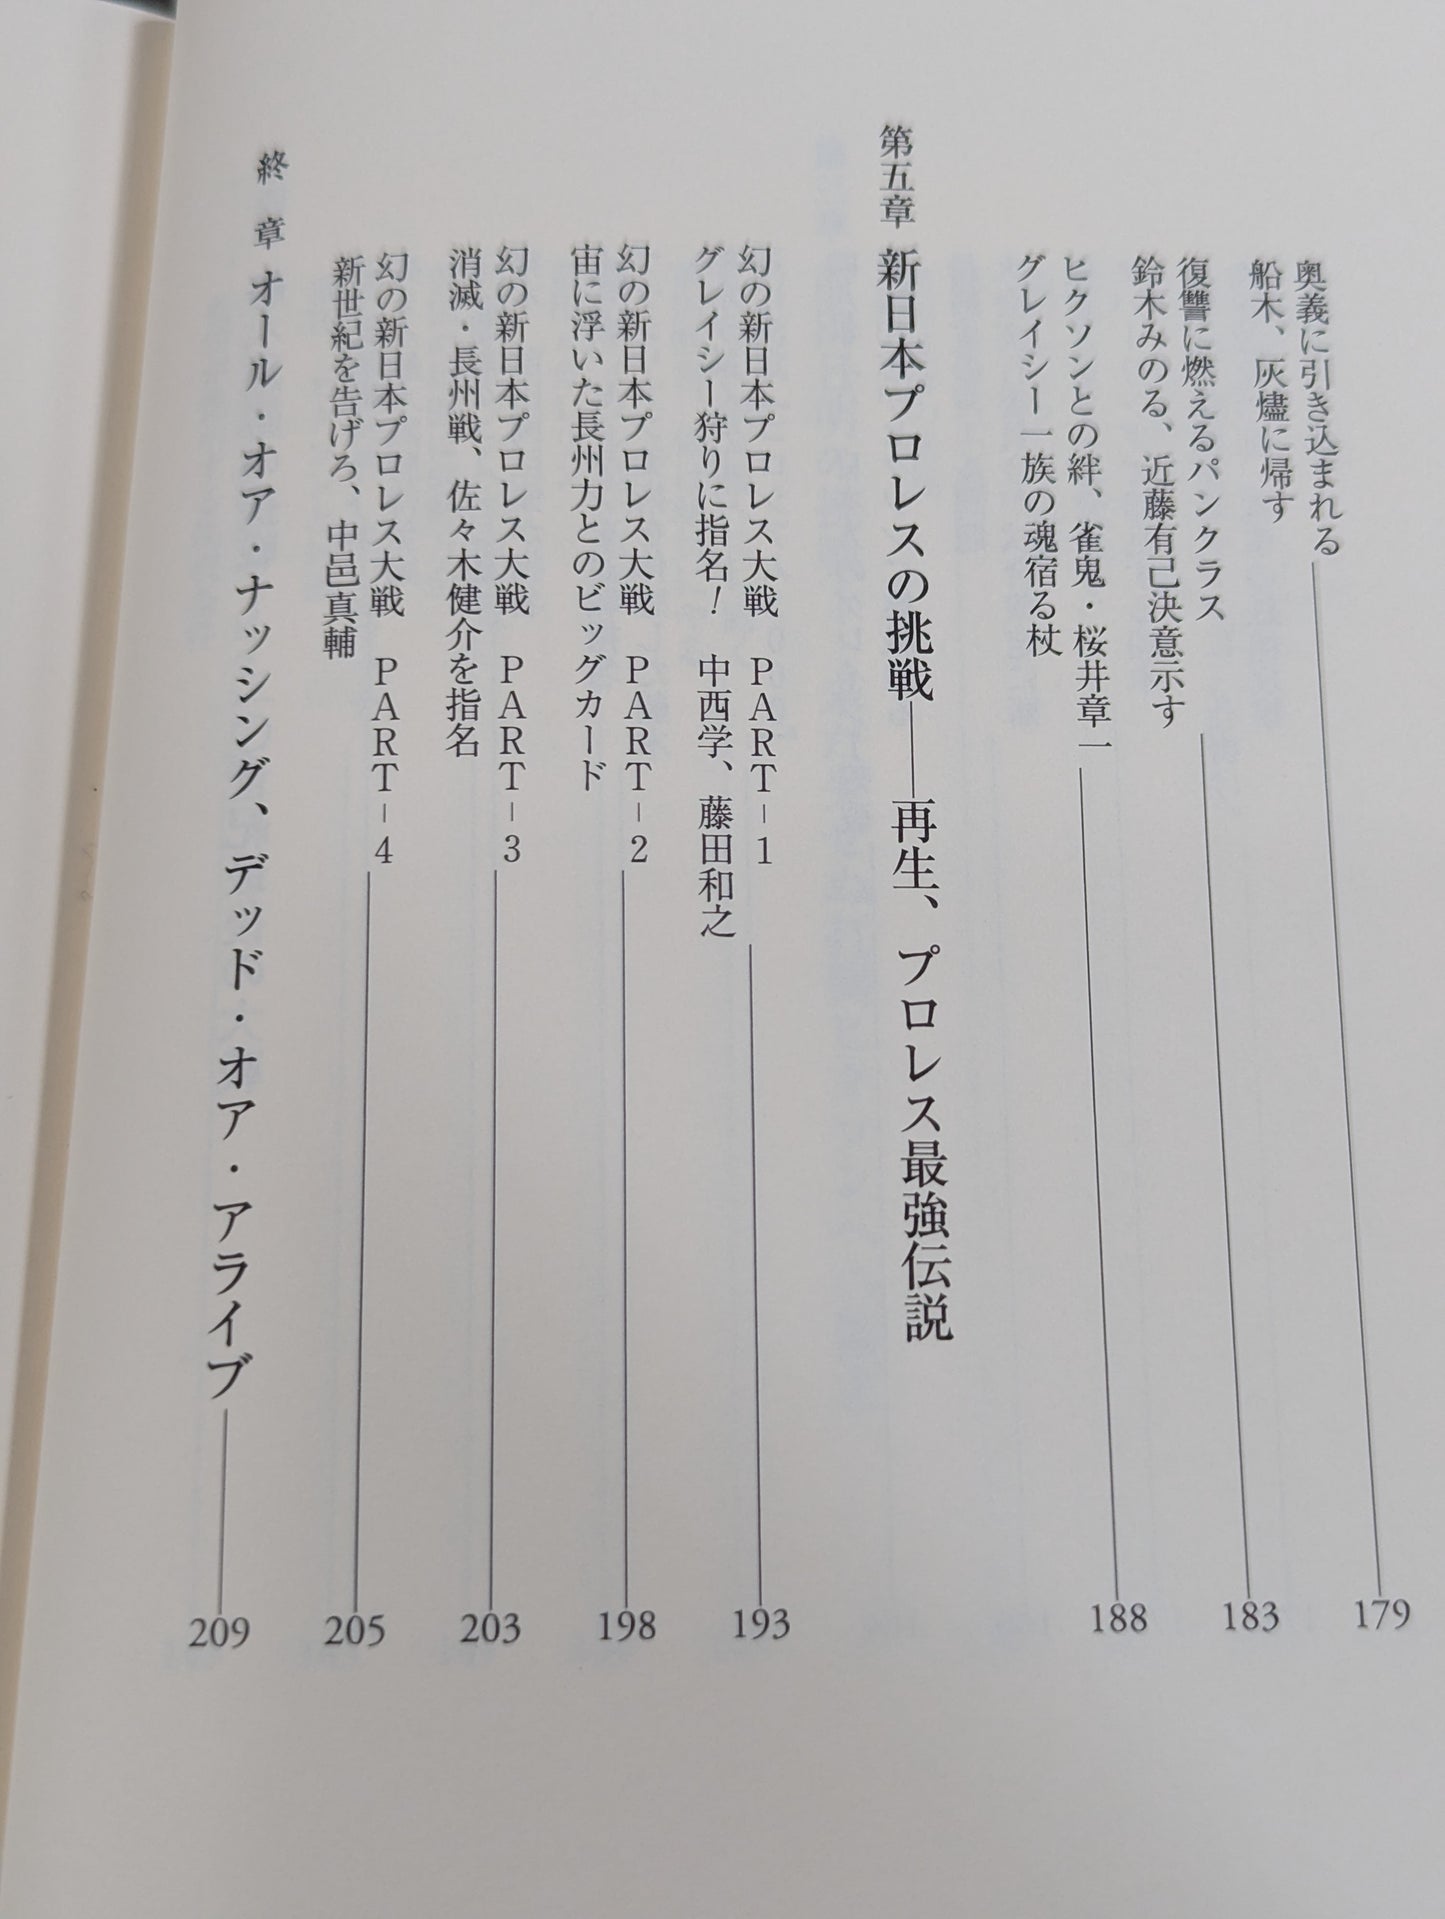 奥義に引き込まれる
船木、灰燼に帰す
179
復讐に燃えるパンクラス
鈴木みのる、近藤有己決意示す
183
ヒクソンとの絆、雀鬼・桜井章一
グレイシー一族の魂宿る杖
188
第五章 新日本プロレスの挑戦――再生、プロレス最強伝説
幻の新日本プロレス大戦 PART-1
グレイシー狩りに指名！ 中西学、藤田和之
193
幻の新日本プロレス大戦 PART-2
宙に浮いた長州力とのビッグカード
198
幻の新日本プロレス大戦 PART-3
消滅・長州戦、佐々木健介を指名
203
幻の新日本プロレス大戦 PART-4
新世紀を告げろ、中邑真輔
205
終 章 オール・オア・ナッシング、デッド・オア・アライブ
209